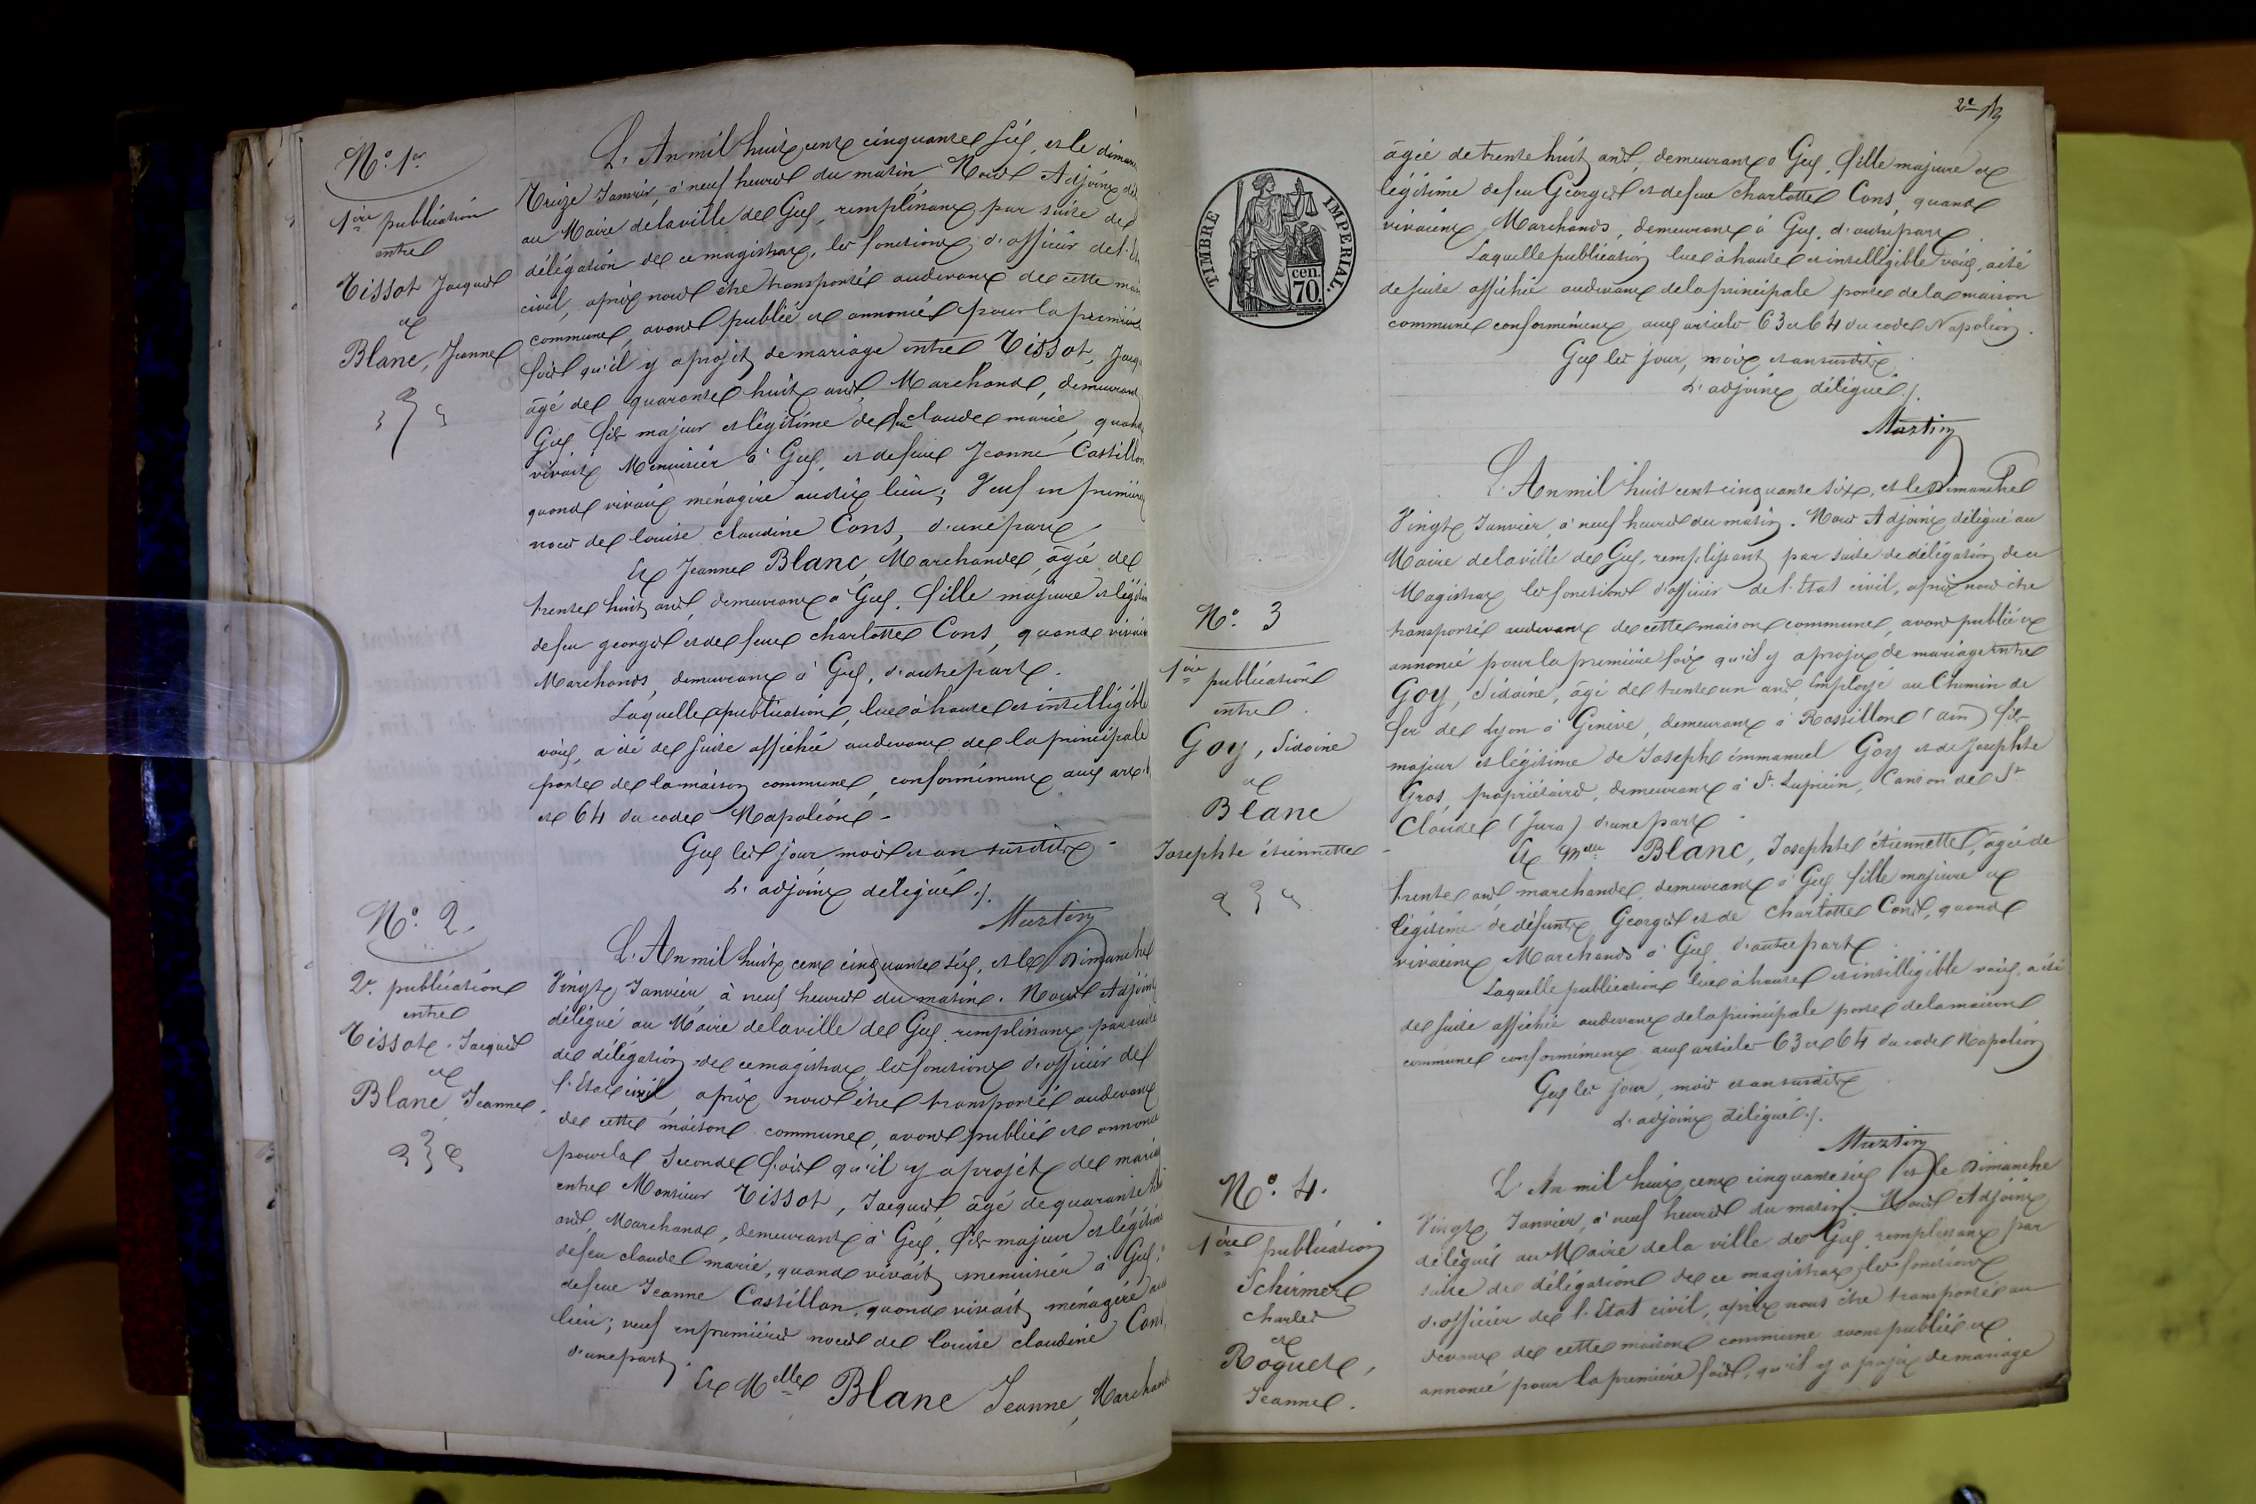 N.° 1er
1ère publication
entre
Tissot Jacques
et
Blanc, Jeanne
L'An mil huit cent cinquante six, et le diman
Treize Janvier, à neuf heures du matin Nous Adjoint dé
au Maire de la ville de Gex, remplissant par suite de
délégation de ce magistrat, les fonctions d'officier de l'É
civil, après nous être transporté au devant de cette mai
commune, avons publié et annoncé pour la première
fois qu'il y a projet de mariage entre Tissot, Jacq
âgé de quarante huit ans, Marchand, demeurant
Gex fils majeur et légitime de feu claude marie, quand
vivait Menuisier à Gex, et de feue Jeanne Castillon
quand vivait ménagère audit lieu; Veuf en premières
noces de louise claudine Cons, d'une part,
Et Jeanne Blanc, Marchande, âgée de
trente huit ans, demeurant à Gex, fille majeure et légitim
de feu georges et de feue charlotte Cons, quand vivaien
Marchands, demeurant à Gex, d'autre part.
Laquelle publication, lue à haute et intelligible
voix, a été de suite affichée au devant de la principale
porte de la maison commune, conformément aux art.
et 64 du code Napoléon.
Gex les jour, mois et an susdits
L'adjoint délégué ./.
Martin
N.° 2.
2e. publication
entre
Tissot. Jacques
et
Blanc Jeanne
L'An mil huit cent cinquante six, et le Dimanche
Vingt Janvier, à neuf heures du matin. Nous Adjoint
délégué au Maire de la ville de Gex remplissant par suite
de délégation de ce magistrat les fonctions d'officier de
l'Etat civil, après nous être transporté au devant
de cette maison commune, avons publié et annoncé
pour la seconde fois qu'il y a projet de maria
entre Monsieur Tissot, Jacques, âgé de quarante
ans, Marchand, demeurant à Gex, fils majeur et légitime
de feu claude marie, quand vivait menuisier à Gex,
de feue Jeanne Castillon, quand vivait ménagère au
lieu; veuf en premières noces de louise claudine Cons,
d'une part,
Et Melle Blanc Jeanne, Marchand
2e
TIMBRE IMPERIAL.
70 cen.
âgée de trente huit ans, demeurant à Gex, fille majeure et
légitime de feu Georges et de feue charlotte Cons, quand
vivaient Marchands, demeurant à Gex, d'autre part.
Laquelle publication lue à haute et intelligible voix, a été
de suite affichée au devant de la principale porte de la maison
commune conformément aux articles 63 et 64 du code Napoléon.
Gex les jour, mois et an susdits
L'adjoint délégué ./.
Martin
N.° 3
1ère publication
entre
Goy, Sidoine
et
Blanc
Josephte étiennette
L'An mil huit cent cinquante six, et le Dimanche
Vingt Janvier, à neuf heures du matin. Nous Adjoint délégué au
Maire de la ville de Gex, remplissant par suite de délégation de ce
Magistrat les fonctions d'officier de l'Etat civil, après nous être
transporté au devant de cette maison commune, avons publié et
annoncé pour la première fois qu'il y a projet de mariage entre
Goy, Sidoine, âgé de trente un ans, Employé au Chemin de
fer de Lyon à Genève, demeurant à Rossillon (ain) fils
majeur et légitime de Joseph émmanuel Goy et de Josephte
Gros, propriétaires, demeurant à St. Lupicin, Canton de St
Claude (Jura) d'une part
Et Melle Blanc, Josephte étiennette, âgée de
trente ans, marchande, demeurant à Gex, fille majeure et
légitime de défunts Georges et de Charlotte Cons, quand
vivaient Marchands à Gex, d'autre part
Laquelle publication lue à haute et intelligible voix, a été
de suite affichée au devant de la principale porte de la maison
commune conformément aux articles 63 et 64 du code Napoléon
Gex les jour, mois et an susdits
L'adjoint délégué ./.
Martin
N.° 4.
1ère publication
Schirmer
Charles
et
Roguet,
Jeanne.
L'An mil huit cent cinquante six et le Dimanche
Vingt Janvier, à neuf heures du matin. Nous Adjoint
délégué au Maire de la ville de Gex remplissant par
suite de délégation de ce magistrat les fonctions
d'officier de l'Etat civil, après nous être transporté au
devant de cette maison commune avons publié et
annoncé pour la première fois, qu'il y a projet de mariage